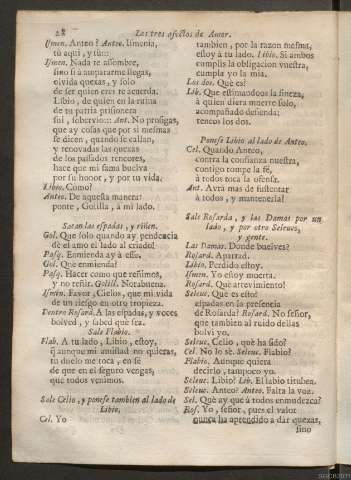 28 Los tres afectos de Amor.
Ismen. Anteo? Anteo. Ismenia,
tù aqui?
Ismen. Nada te assombre,
sino si à ampararme llegas,
olvida quexas, y solo
de ser quien eres te acuerda.
Libio, de quien en la ruina
de tu patria prisionera
fui, sobervio:::: Ant. No prosigas,
que ay cosas que por si mesmas
se dicen, quando se callan,
y renovadas las quexas
de los passados rencores,
hace que mi fama buelva
por su honor, y por tu vida.
Libio. Como?
Anteo. De aquesta manera:
ponte, Golilla, à mi lado.
Sacan las espadas, y riñen.
Gol. Que solo quando ay pendencia
dè el amo el lado al criado!
Pasq. Enmienda ay à esso.
Gol. Què enmienda?
Pasq. Hacer como que reñimos,
y no reñir. Golill. Norabuena.
Ismen. Favor, Cielos, que mi vida
de un riesgo en otro tropieza.
Dentro Rosard. A las espadas, y voces
bolved, y sabed què sea.
Sale Flabio.
Flab. A tu lado, Libio, estoy,
q̃ aunque mi amistad no quieras,
tu duelo me toca, en fè
de que en el seguro vengas,
que todos venimos.
Sale Celio, y ponese tambien al lado de
Libio.
Cel. Yo
tambien, por la razon mesma,
estoy à tu lado. Libio. Si ambos
cumplis la obligacion vuestra,
cumpla yo la mia.
Los dos. Què es?
Lib. Que estimandoos la fineza,
à quien diera muerte solo,
acompañado defienda:
teneos los dos.
Ponese Libio al lado de Anteo.
Cel. Quando Anteo,
contra la confianza nuestra,
contigo rompe la fè,
à todos toca la ofensa.
Ant. Avrà mas de sustentar
à todos, y mantenerla!
Sale Rosarda, y las Damas por un
lado, y por otro Seleuco,
y gente.
Las Damas. Donde buelves?
Rosard. Apartad.
Libio. Perdido estoy.
Ismen. Yo estoy muerta.
Rosard. Què atrevimiento!
Seleuc. Què es esto!
espadas en la presencia
de Rosarda? Rosard. No señor,
que tambien al ruido dellas
bolvì yo.
Seleuc. Celio, què ha sido?
Cel. No lo sè. Seleuc. Flabio?
Flabio. Aunque quiera
decirlo, tampoco yo.
Seleuc. Libio? Lib. El labio titubea.
Seleuc. Anteo? Anteo. Falta la voz.
Sel. Què ay que à todos enmudezca?
Ros. Yo, señor, pues el valor
nunca ha aprendido à dàr quexas,
sino